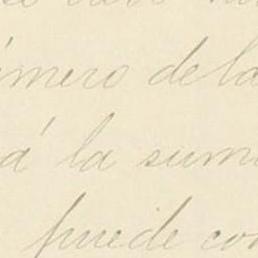 número de la
á la suma
puede con